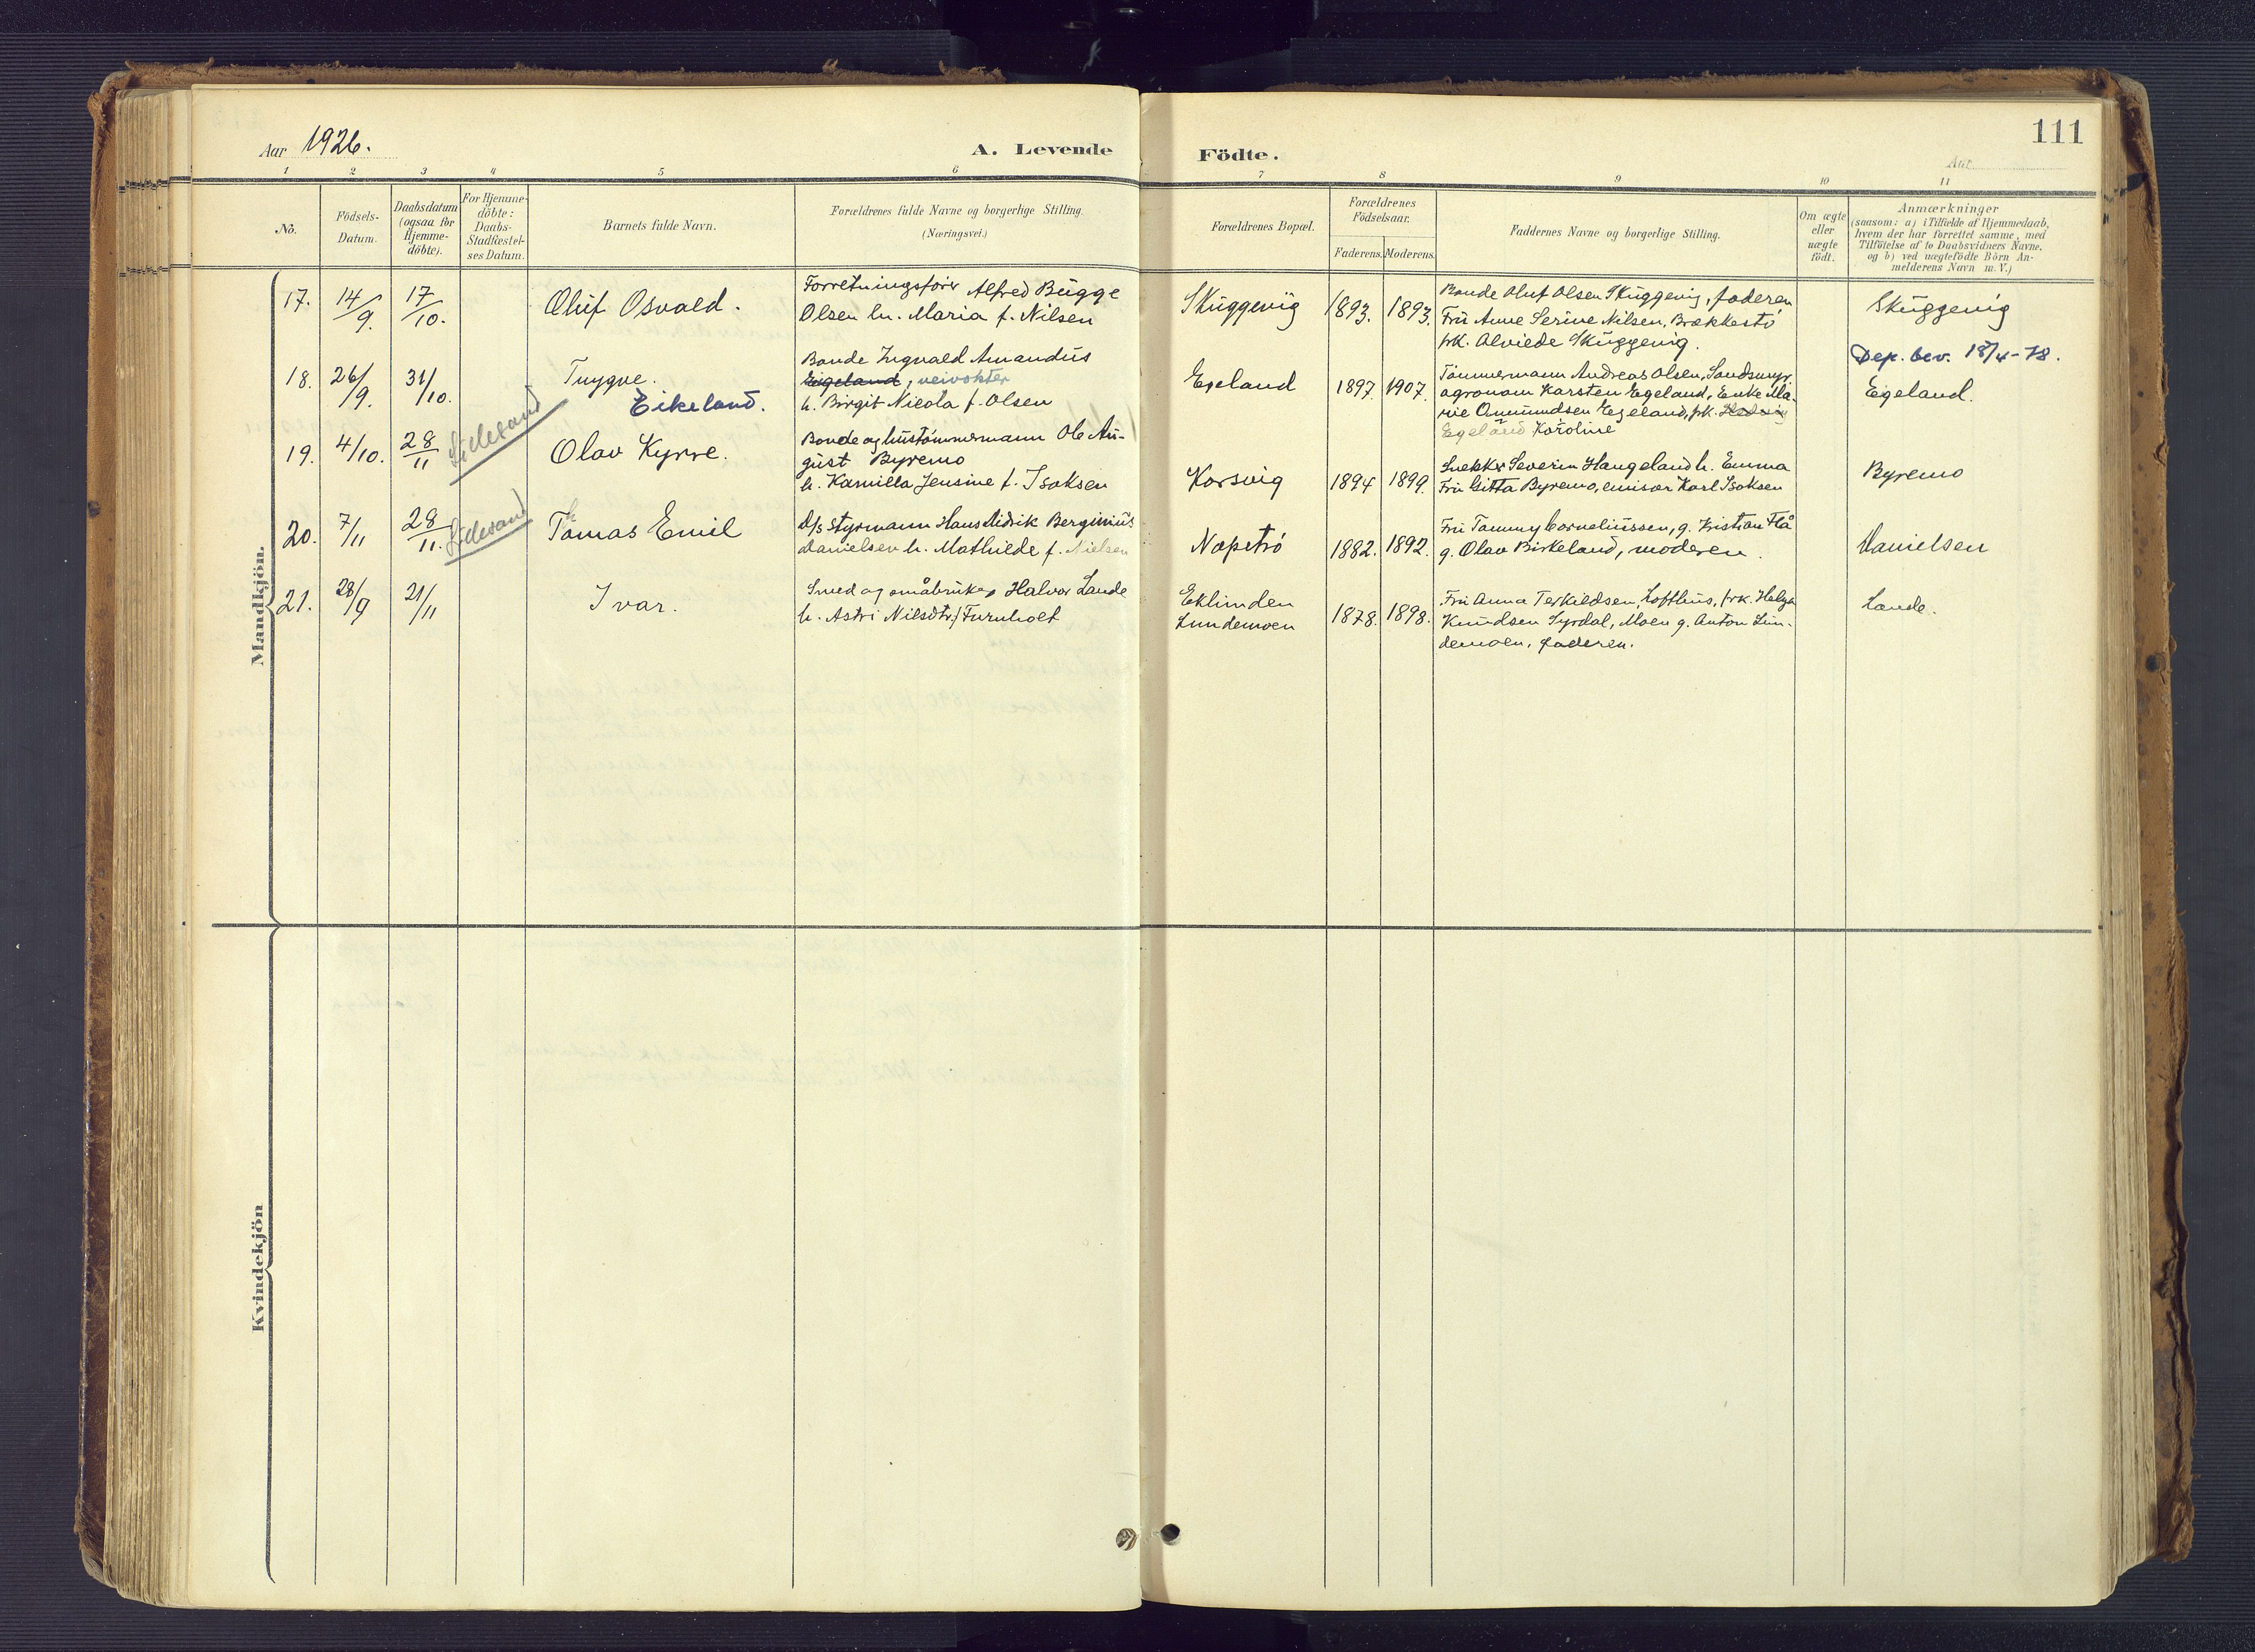 111
Aar 1926.
A. Levende Födte.
Aar
1 2 3 4 5 6 7 8 9 10 11
No.
Födsels-
Datum.
Daabsdatum
(ogsaa for
Hjemme-
döbte).
For Hjemme-
döbte:
Daabs-
Stadfæstel-
ses Datum.
Barnets fulde Navn.
Forældrenes fulde Navne og borgerlige Stilling.
(Næringsvei.)
Forældrenes Bopæl.
Forældrenes
Födselsaar.
Faderens. Moderens.
Faddernes Navne og borgerlige Stilling.
Om ægte
eller
uægte
födt.
Anmærkninger
(saasom: a) i Tilfælde af Hjemmedaab,
hvem der har forrettet samme, med
Tilföielse af to Daabsvidners Navne,
og b) ved uægtefödte Börn An-
melderens Navn m. V.)
Mandkjön.
17. 14/9. 17/10.
Oluf Osvald.
Forretningsfører Alfred Bugge
Olsen hu. Maria f. Nilsen
Skuggevig
1893. 1893.
Bonde Oluf Olsen Skuggevig, faderen
Fru Anne Serine Nilsen, Brækkestø
frk. Alviede Skuggevig.
Skuggevig
18. 26/9. 31/10.
Trygve.
Eikeland.
Bonde Ingvald Amandus
Eigeland, veivokter
h. Birgit Nicola f. Olsen
Egeland
1897. 1907.
Tømmermann Andreas Olsen, Sandsmyr,
agronom Karsten Egeland, Enke Ma-
rie Ommundsen Egeland, frk. Hedvig
Egeland Karoline
Dep. bev. 18/4-78.
Egeland.
19. 4/10. 28/11
Lillesand
Olav Kyrre.
Bonde og hustømmermann Ole Au-
gust Byremo
h. Kamilla Jensine f. Isaksen
Korsvig
1894 1899.
Snekker Severin Haugeland h. Emma
Fru Gitta Byremo, emisær Karl Isaksen
Byremo
20. 7/11 28/11.
Lillesand
Tomas Emil
D/s Styrmann Hans Didrik Berginius
Danielsen h. Mathilde f. Nielsen
Nopstrø
1882. 1892.
Fru Tommy Corneliussen, g. Kristian Flå
g. Olav Birkeland, moderen.
Danielsen
21. 28/9 21/11
Ivar.
Smed og småbruker Halvor Lande
h. Astri Nilsdtr. f. Furuholt
Eklinden
Lundemoen
1878. 1898.
Fru Anna Terkildsen, Lofthus, frk. Helga
Knudsen Syrdal, Moen g. Anton Lun-
demoen, faderen.
Lande.
Kvindekjön